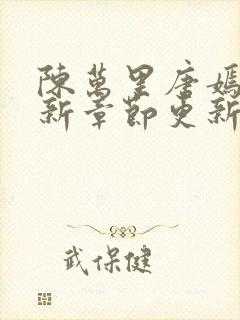 陳萬里唐嫣
新章節更新
武保健